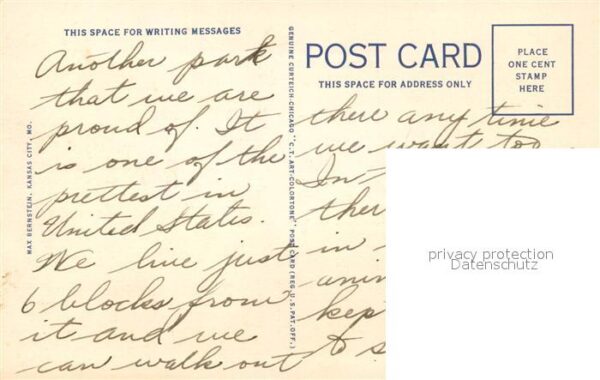 THIS SPACE FOR WRITING MESSAGES
Another park
that we are
proud of. It
is one of the
prettest in
United States.
We live just
6 blocks from
it and we
can walk out
MAX BERNSTEIN, KANSAS CITY, MO.
GENUINE CURTEICH-CHICAGO "C.T. ART-COLORTONE" POST CARD (REG. U.S. PAT. OFF.)
POST CARD
THIS SPACE FOR ADDRESS ONLY
PLACE
ONE CENT
STAMP
HERE
there any time
we want too
In
ther
in
anim
kep
to s
privacy protection
Datenschutz